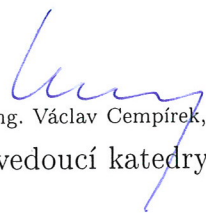 ng. Václav Cempírek,
vedoucí katedry